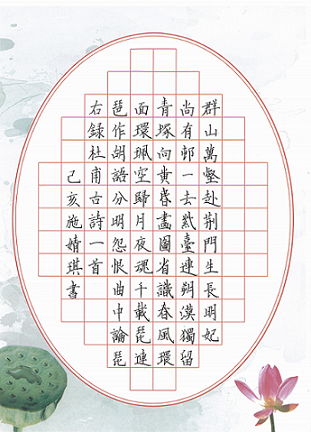 群山萬壑赴荆門生長明妃
尚有邨一去紫臺連朔漠獨留
青塚向黄昏畫圖省識春風環
面環珮空歸月夜魂千載琵連
琶作胡語分明怨恨曲中論琵
右録杜甫古詩一首
己亥施婧琪書